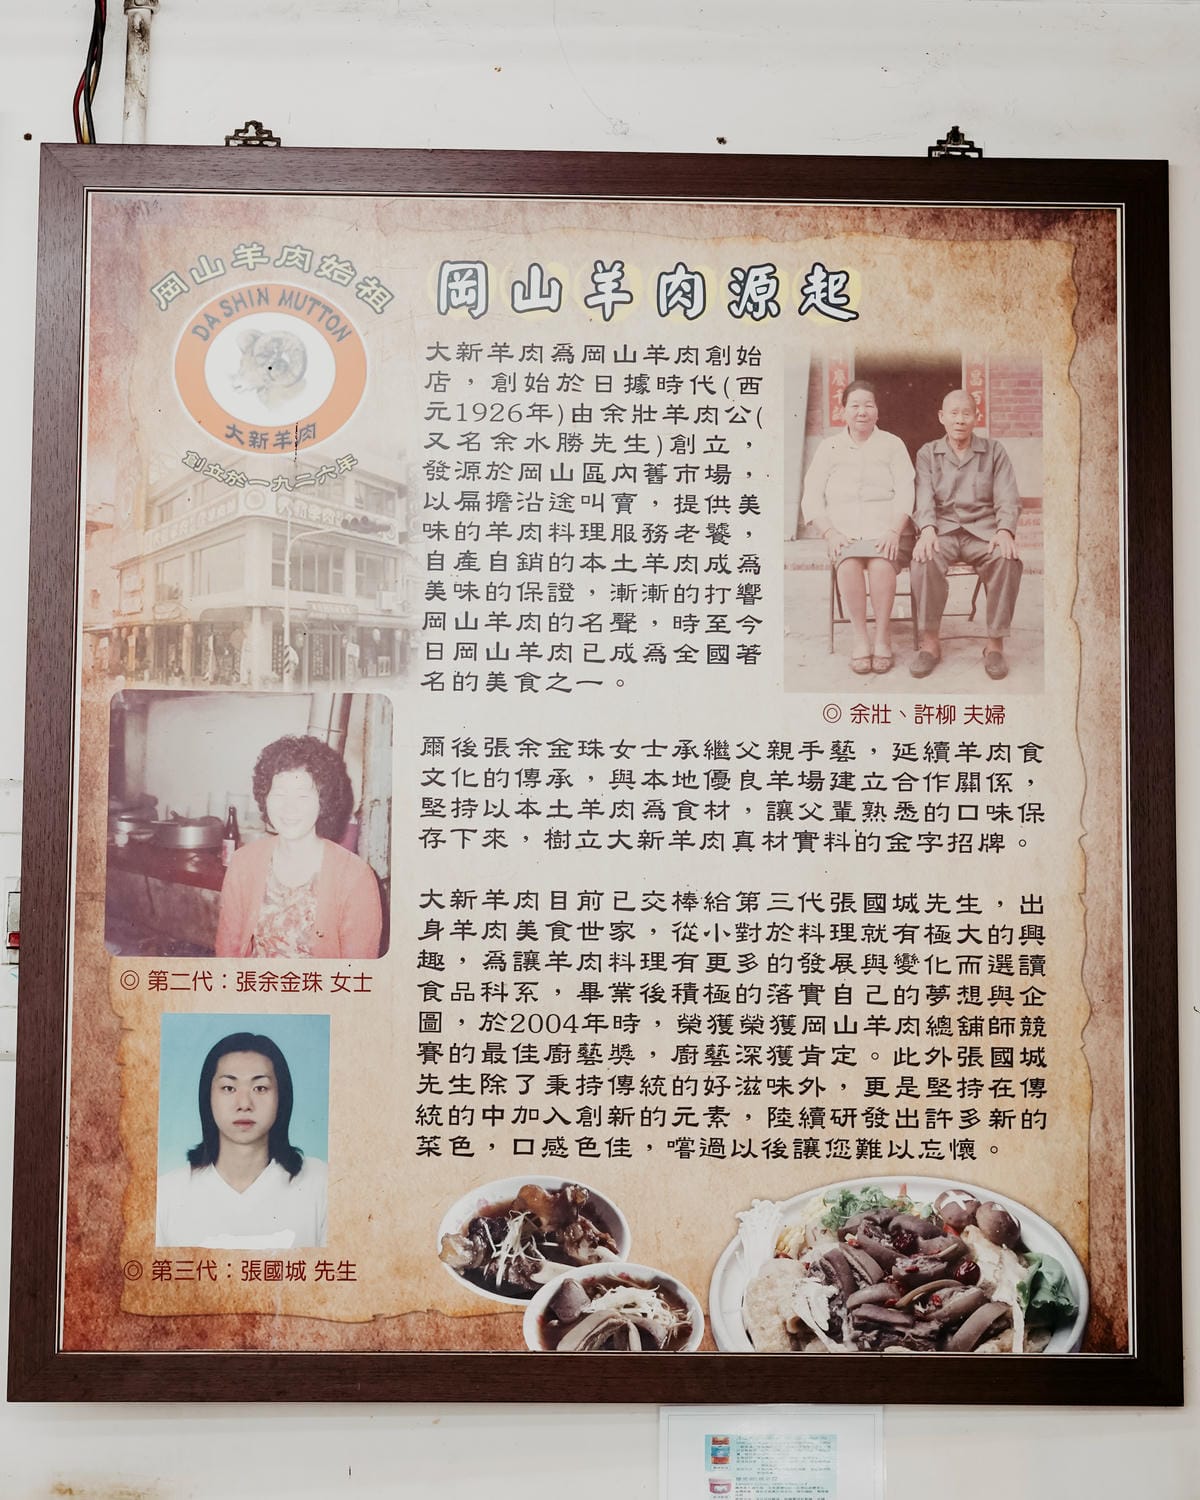 岡山羊肉始祖
DA SHIN MUTTON
大新羊肉
創立於一九二六年
岡山羊肉源起
大新羊肉為岡山羊肉創始
店，創始於日據時代(西
元1926年)由余壯羊肉公(
又名余水勝先生)創立，
發源於岡山區內舊市場，
以扁擔沿途叫賣，提供美
味的羊肉料理服務老饕，
自產自銷的本土羊肉成為
美味的保證，漸漸的打響
岡山羊肉的名聲，時至今
日岡山羊肉已成為全國著
名的美食之一。
◎ 余壯、許柳 夫婦
爾後張余金珠女士承繼父親手藝，延續羊肉食
文化的傳承，與本地優良羊場建立合作關係，
堅持以本土羊肉為食材，讓父輩熟悉的口味保
存下來，樹立大新羊肉真材實料的金字招牌。
◎ 第二代：張余金珠 女士
大新羊肉目前已交棒給第三代張國城先生，出
身羊肉美食世家，從小對於料理就有極大的興
趣，為讓羊肉料理有更多的發展與變化而選讀
食品科系，畢業後積極的落實自己的夢想與企
圖，於2004年時，榮獲榮獲岡山羊肉總舖師競
賽的最佳廚藝獎，廚藝深獲肯定。此外張國城
先生除了秉持傳統的好滋味外，更是堅持在傳
統的中加入創新的元素，陸續研發出許多新的
菜色，口感色佳，嚐過以後讓您難以忘懷。
◎ 第三代：張國城 先生